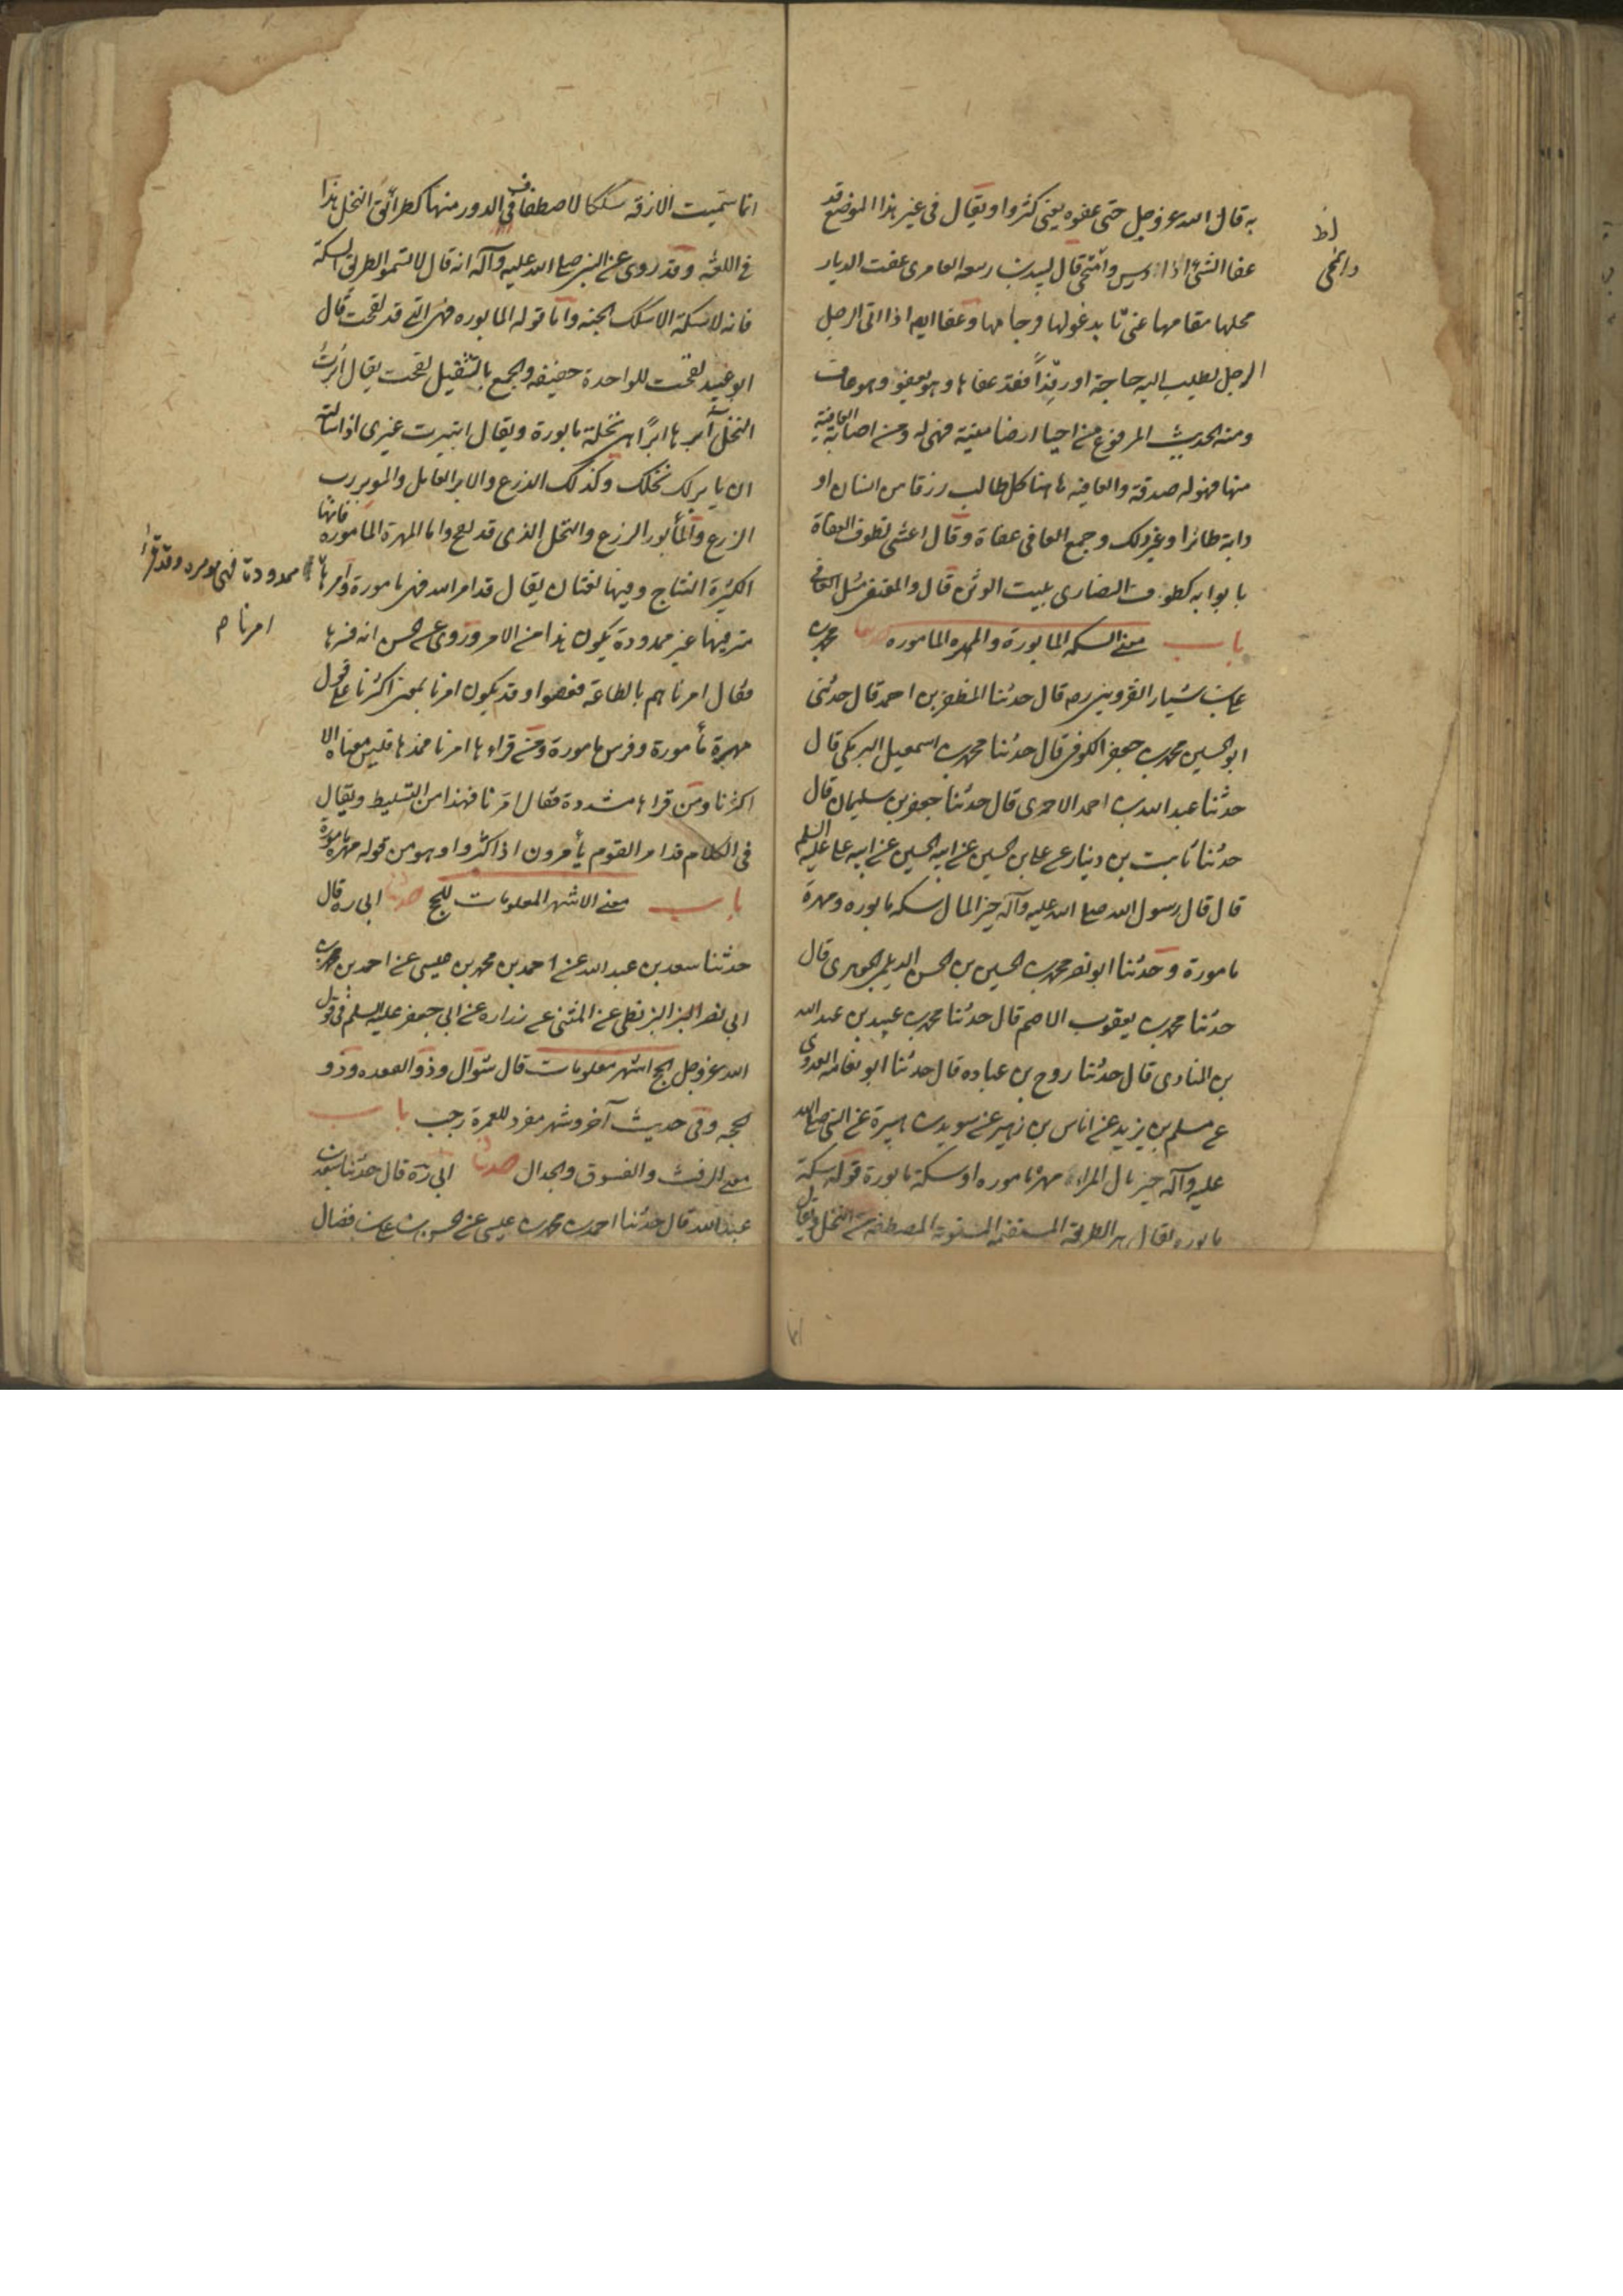 به قال الله عز وجل حتى عفوه يعنى كثروا ويقال فى غير هذا الموضع قد
عفا الشئ اذا درس وامتحى قال لبيد بن ربيعه العامرى عفت الديار
محلها فمقامها بمنى تابد غولها فرجامها وعفا ايضا اذا اتى الرجل
الرجل يطلب اليه حاجة او رفدا فقد عفاه وهو يعفوه وهو عاف
ومنه الحديث المرفوع من احيا ارضا ميتة فهى له وما اصابت العافية
منها فهو له صدقة والعافيه هاهنا كل طالب رزقا من انسان او
دابة طائرا وغير ذلك وجمع العافى عفاة وقال اعشى تطوف العفاة
بابوابه كطوف النصارى ببيت الوثن قال والمعتفى مثل العافى
باب معنى السكه المابورة والمهره الماموره حدثنا محمد بن
على بن بشار القزوينى ره قال حدثنا المظفر بن احمد قال حدثنى
ابو الحسين محمد بن جعفر الكوفى قال حدثنا محمد بن اسمعيل البرمكى قال
حدثنا عبد الله بن احمد الاحمرى قال حدثنا جعفر بن سليمان قال
حدثنا ثابت بن دينار عن على بن الحسين عن ابيه الحسين عن ابيه على عليه السلم
قال قال رسول الله صلى الله عليه وآله خير المال سكه مابوره ومهرة
مامورة وحدثنا ابو نصر محمد بن الحسين بن الحسن الديلمى الجوهرى قال
حدثنا محمد بن يعقوب الاصم قال حدثنا محمد بن عبيد بن عبد الله
بن المنادى قال حدثنا روح بن عباده قال حدثنا ابو نعامه العدوى
عن مسلم بن يزيد عن اناس بن زهير عن سويد بن هبيرة عن النبى صلى الله
عليه وآله خير مال المراء مهرة ماموره او سكة مابورة قوله سكة
مابوره يقال هى الطريقة المستقيمه المستويه المصطفه من النخل ويقال
دامحى
انما سميت الازقه سككا لاصطفاف الدور فيها كطرائق النخل هذا
فى اللغة وقد روى عن النبى صلى الله عليه وآله انه قال لا تسموا الطريق السكة
فانه لا سكة الا سكك الجنه واما قوله المابوره فهى التى قد لقحت قال
ابو عبيد لقحت للواحدة خفيفه والجمع بالتثقيل لقحت يقال ابرت
النخل آبرها ابرا وهى نخلة مابورة ويقال ائتبرت غيرى اذا سالته
ان يابر لك نخلك وكذلك الزرع والابر العامل والموبر رب
الزرع والمأبور الزرع والنخل الذى قد لقح واما المهرة الماموره فانها
الكثيرة النتاج وفيها لغتان يقال قد امر الله فهى مامورة وآمرها
ممدودة فهى مومره وقد قرأ
امرنا م
مترفيها غير ممدودة يكون هذا من الامر وروى عن الحسن انه فسرها
فقال امرناهم بالطاعة فعصوا وقد يكون امرنا بمعنى اكثرنا على قول
مهرة مأمورة وفرس مامورة ومن قراءها امرنا فمدها فليس معناه الا
اكثرنا ومن قراءها مشددة فقال امّرنا فهذا من التسليط ويقال
فى الكلام قد امر القوم يأمرون اذا كثروا وهو من قوله مهرة مامورة
باب معنى الاشهر المعلومات للحج حدثنا ابى ره قال
حدثنا سعد بن عبد الله عن احمد بن محمد بن عيسى عن احمد بن محمد بن
ابى نصر البزنطى عن المثنى عن زراره عن ابى جعفر عليه السلم فى قول
الله عز وجل الحج اشهر معلومات قال شوال وذو القعده وذو
الحجه وفى حديث آخر وشهر مفرد للعمرة رجب باب
معنى الرفث والفسوق والجدال حدثنا ابى ره قال حدثنا سعد بن
عبد الله قال حدثنا احمد بن محمد بن عيسى عن الحسن بن على بن فضال